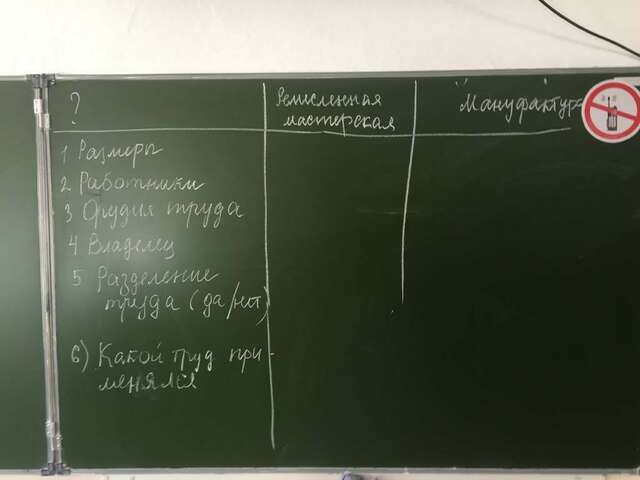 ?
Ремесленная
мастерская
"Мануфактура
1 Размеры
2 Работники
3 Орудия труда
4 Владелец
5 Разделение
труда (да/нет)
6) Какой труд при-
менялся